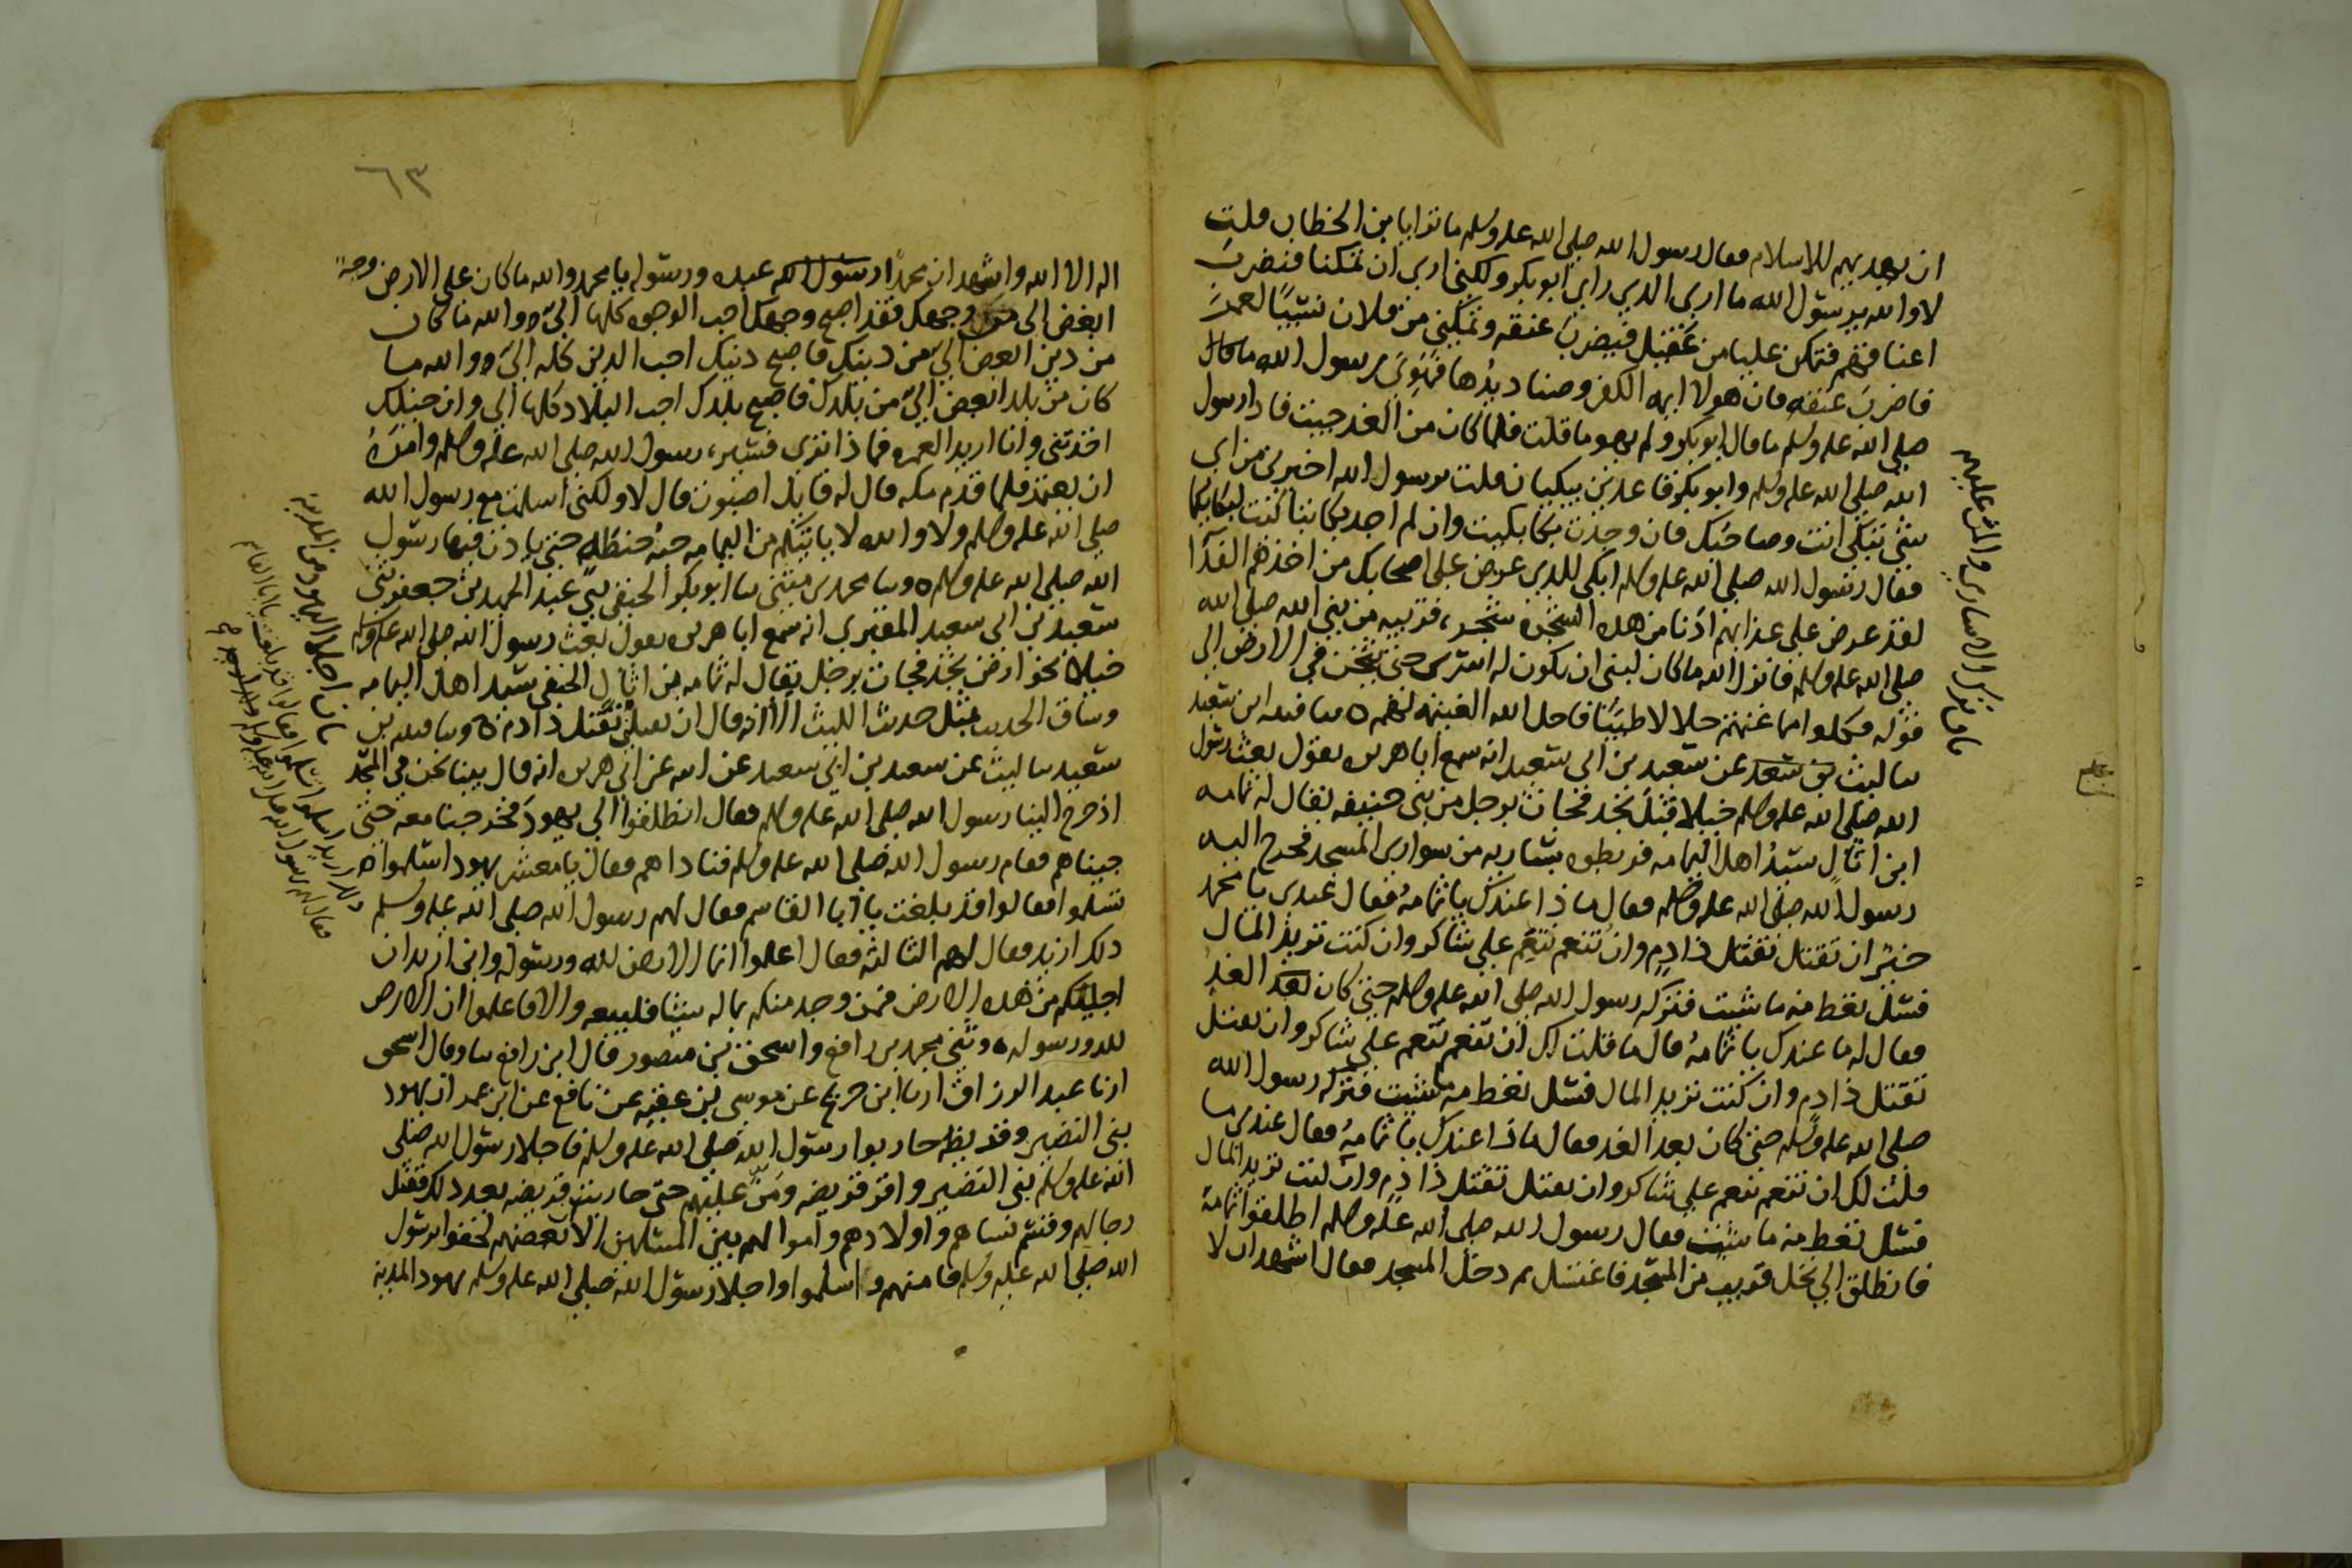 ان يهديهم للاسلام فقال رسول الله صلى الله عليه وسلم ما ترا يابن الخطاب قلت
لا والله يرسول الله ما ارى الذي راي ابو بكر ولكني ارى ان تمكنا فنضرب
اعناقهم فتمكن عليا من عقيل فيضرب عنقه وتمكيني من فلان نسيبًا لعمر
فاضرب عنقه فان هولا ايمه الكفر وصناديدها فهوى رسول الله ما قال
صلى الله عليه وسلم ما قال ابو بكر ولم يهو ما قلت فلما كان من الغد جيت فاذا رسول
الله صلى الله عليه وسلم وابو بكر قاعدين يبكيان قلت يرسول الله اخبرني من اي
شي تبكي انت وصاحبك فان وجدت بكا بكيت وان لم اجد بكا تباكيت لبكايكما
فقال رسول الله صلى الله عليه وسلم ابكي للذي عرض علي اصحابك من اخذهم الفدآ
لقد عرض علي عذابهم ادنا من هذه الشجرة شجرة قريبه من نبي الله صلى الله
صلى الله عليه وسلم فانزل الله ما كان لنبي ان يكون له اسرى حتى يثخن في الارض الى
قوله فكلوا مما غنمتم حلالا طيبًا فاحل الله الغنيمه لهم ه سا قتيبه ابن سعيد
سا ليث بن سعد عن سعيد بن ابي سعيد انه سمع ابا هريره يقول بعث رسول
الله صلى الله عليه وسلم خيلا قبل نجد فجات برجل من بني حنيفه يقال له ثمامه
ابن اثال سيد اهل اليمامه فربطوه بساريه من سواري المسجد فخرج اليه
رسول الله صلى الله عليه وسلم فقال ماذا عندك يا ثمامه فقال عندي يا محمد
خير ان تقتل تقتل ذا دم وان تنعم تنعم علي شاكر وان كنت تريد المال
فسل تعط منه ما شيت فتركه رسول الله صلى الله عليه وسلم حتى كان بعد الغد
فقال له ما عندك يا ثمامه قال ما قلت لك ان تنعم تنعم علي شاكر وان تقتل
تقتل ذا دم وان كنت تريد المال فسل تعط منه ما شيت فتركه رسول الله
صلى الله عليه وسلم حتى كان بعد الغد فقال ماذا عندك يا ثمامه فقال عندي ما
قلت لك ان تنعم تنعم علي شاكر وان تقتل تقتل ذا دم وان كنت تريد المال
فسل تعط منه ما شيت فقال رسول الله صلى الله عليه وسلم اطلقوا ثمامه
فانطلق الي نخل قريب من المسجد فاغتسل ثم دخل المسجد فقال اشهد ان لا
باب ترك الاسارى والمن عليهم
٦٣
اله الا الله واشهد ان محمدًا رسول الله عبده ورسوله يا محمد والله ما كان علي الارض وجه
ابغض الي من وجهك فقد اصبح وجهك احب الوجوه كلها الي ه والله ما كان
من دين ابغض الي من دينك فاصبح دينك احب الدين كله الي ه ووالله ما
كان من بلد ابغض الي من بلدك فاصبح بلدك احب البلاد كلها الي وان خيلك
اخذتني وانا اريد العمره فماذا ترى فبشره رسول الله صلى الله عليه وسلم وامره
ان يعتمر فلما قدم مكه قال له قايل اصبوت قال لا ولكني اسلمت مع رسول الله
صلى الله عليه وسلم ولا والله لا ياتيكم من اليمامه حبة حنطة حتى ياذن فيها رسول
الله صلى الله عليه وسلم ه وسا محمد بن مثنى سا ابو بكر الحنفي ثني عبد الحميد بن جعفر ثني
سعيد بن ابي سعيد المقبري انه سمع ابا هريره يقول بعث رسول الله صلى الله عليه وسلم
خيلا نحو ارض نجد فجات برجل يقال له ثمامه بن اثال الحنفي سيد اهل اليمامه
وساق الحديث بمثل حديث الليث الا انه قال ان تقتلني تقتل ذا دم ه وسا قتيبه بن
سعيد سا ليث عن سعيد بن ابي سعيد عن ابيه عن ابي هريره انه قال بينا نحن في المسجد
اذ خرج الينا رسول الله صلى الله عليه وسلم فقال انطلقوا الي يهود فخرجنا معه حتى
جيناهم فقام رسول الله صلى الله عليه وسلم فناداهم فقال يا معشر يهود اسلموا
تسلموا فقالوا قد بلغت يا ابا القاسم فقال لهم رسول الله صلى الله عليه وسلم
ذلك اريد فقال لهم الثالثه فقال اعلموا انما الارض لله ورسوله واني اريد ان
اجليكم من هذه الارض فمن وجد منكم بماله شيئا فليبعه والا فاعلموا ان الارض
لله ورسوله ه وثني محمد بن رافع واسحق بن منصور قال ابن رافع سا وقال اسحق
ارنا عبد الرزاق ارنا ابن جريج عن موسى بن عقبه عن نافع عن ابن عمر ان يهود
بني النضير وقريظه حاربوا رسول الله صلى الله عليه وسلم فاجلا رسول الله صلى
الله عليه وسلم بني النضير واقر قريضه ومن عليهم حتى حاربت قريضه بعد ذلك فقتل
رجالهم وقسم نساهم واولادهم واموالهم بين المسلمين الا بعضهم لحقوا برسول
الله صلى الله عليه وسلم فامنهم واسلموا واجلا رسول الله صلى الله عليه وسلم يهود المدينه
باب اجلا اليهود من المدينه
ذلك اريد اسلموا تسلموا فقالوا قد بلغت يا ابا القاسم
فقال لهم رسول الله صلى الله عليه وسلم